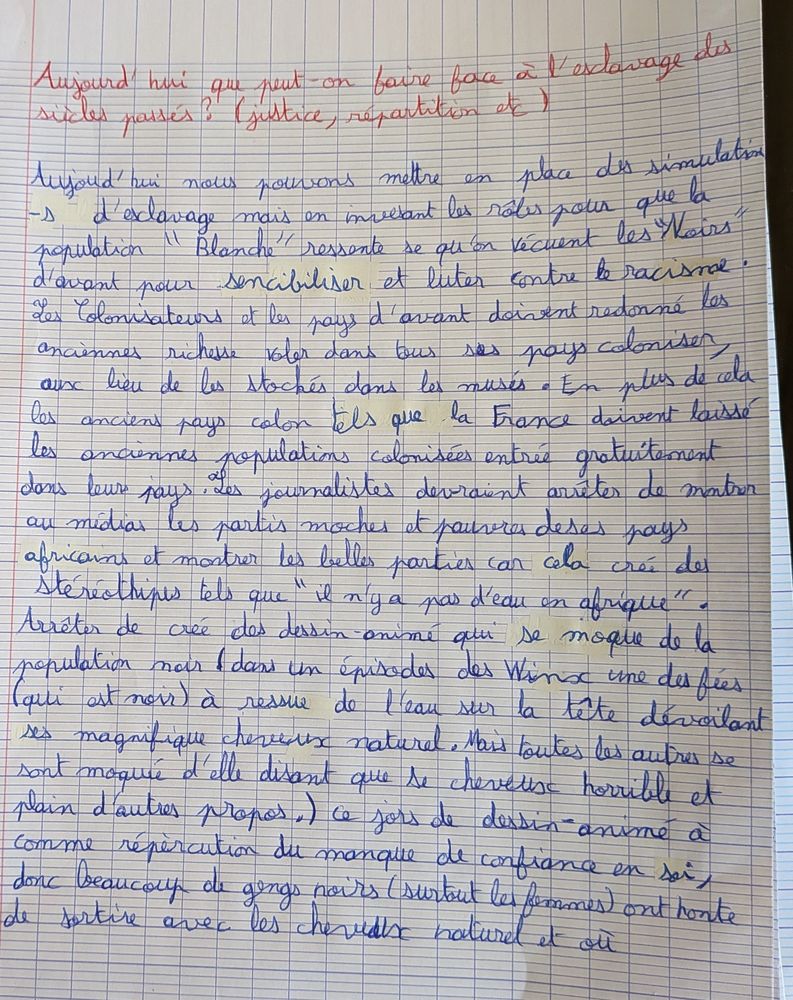 Aujourd'hui que peut-on faire face à l'esclavage des
siècles passés ? (justice, répartition etc)
Aujoud'hui nous pouvons mettre en place des simulation
-s d'esclavage mais en inversant les rôles pour que la
population "Blanche" ressente se qu'on vécuent les "Noirs"
d'avant pour sencibiliser et luter contre le racisme.
Les Colonisateurs et les pays d'avant doivent redonné les
anciènnes richesse voler dans tous ses pays coloniser,
aux lieu de les stochés dans les musés. En plus de cela
les anciens pays colon tels que la France doivent laissé
les anciènnes populations colonisées entrée gratuitement
dans leur pays. Les journalistes devraient arrêter de montrer
au médias les partis moches et pauvres de ses pays
africains et montrer les belles parties car cela créé des
stéréothipes tels que "il n'y a pas d'eau en afrique".
Arrêter de créé des dessin-animé qui se moque de la
population noir (dans un épisodes des Winx une des fées
(qui est noir) à ressue de l'eau sur la tête dévoilant
ses magnifique cheveux naturel. Mais toutes les autres se
sont moquié d'elle disant que se cheveux horrible et
plain d'autres propos.) Ce jors de dessin-animé à
comme répércution du manque de confiance en soi,
donc beaucoup de gengs noirs (surtout les femmes) ont honte
de sortire avec les cheveux naturel et où